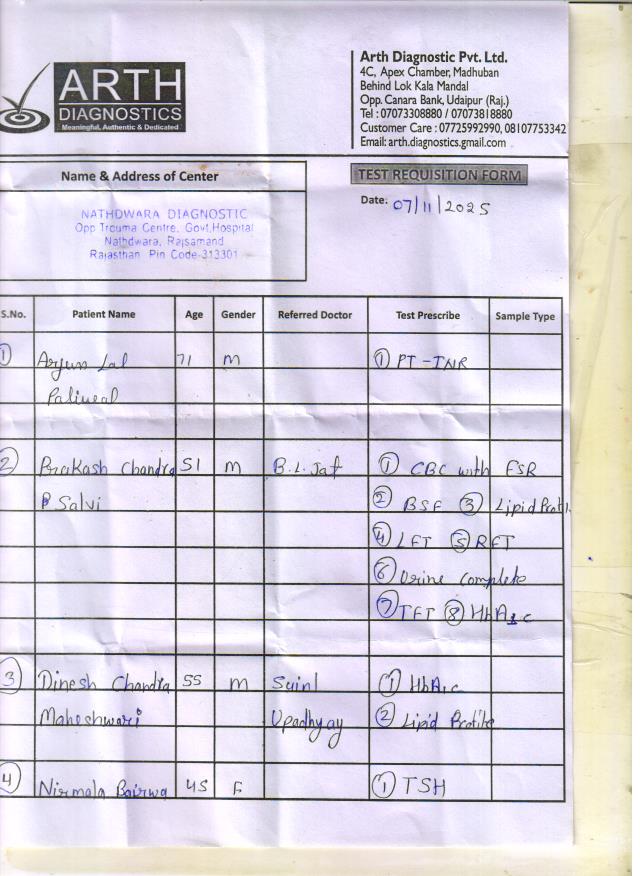 ARTH
DIAGNOSTICS
Meaningful, Authentic & Dedicated
Arth Diagnostic Pvt. Ltd.
4C, Apex Chamber, Madhuban
Behind Lok Kala Mandal
Opp. Canara Bank, Udaipur (Raj.)
Tel : 07073308880 / 07073818880
Customer Care : 07725992990, 08107753342
Email: arth.diagnostics.gmail.com
Name & Address of Center
TEST REQUISITION FORM
NATHDWARA DIAGNOSTIC
Opp Trouma Centre, Govt.Hospital
Nathdwara, Rajsamand
Rajasthan Pin Code-313301
Date: 07/11/2025
S.No. Patient Name Age Gender Referred Doctor Test Prescribe Sample Type
1 Arjun Lal 71 M 1 PT-INR
Paliwal
2 Prakash Chandra 51 M B.L. Jat 1 CBC with ESR
Salvi 2 BSF 3 Lipid Profil
4 LFT 5 RFT
6 Urine complete
7 TFT 8 HbA1c
3 Dinesh Chandra 55 M Sunil 1 HbA1c
Maheshwari Upadhyay 2 Lipid Profile
4 Nirmala Bairwa 45 F 1 TSH